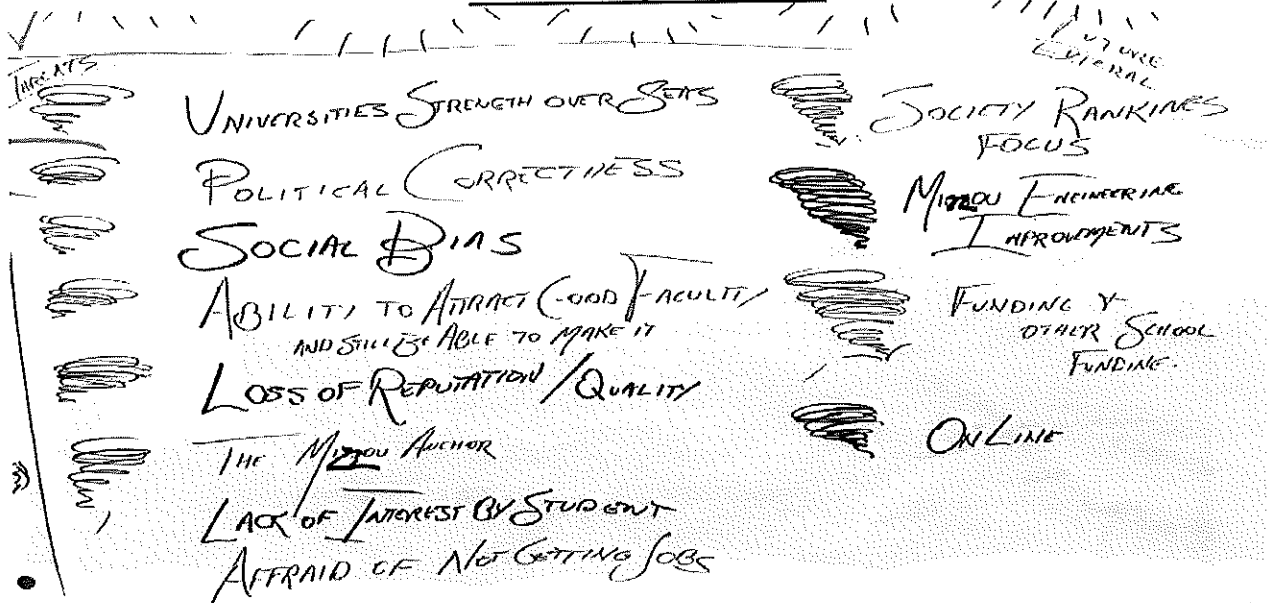 THREATS
UNIVERSITIES STRENGTH OVER SEAS
POLITICAL CORRECTNESS
SOCIAL BIAS
ABILITY TO ATTRACT GOOD FACULTY
AND STILL BE ABLE TO MAKE IT
LOSS OF REPUTATION / QUALITY
THE MIZZOU ANCHOR
LACK OF INTEREST BY STUDENT
AFFRAID OF NOT GETTING JOBS
FUTURE
SOCIETY RANKINGS
FOCUS
MIZZOU ENGINEERING
IMPROVEMENTS
FUNDING &
OTHER SCHOOL
FUNDING.
ONLINE